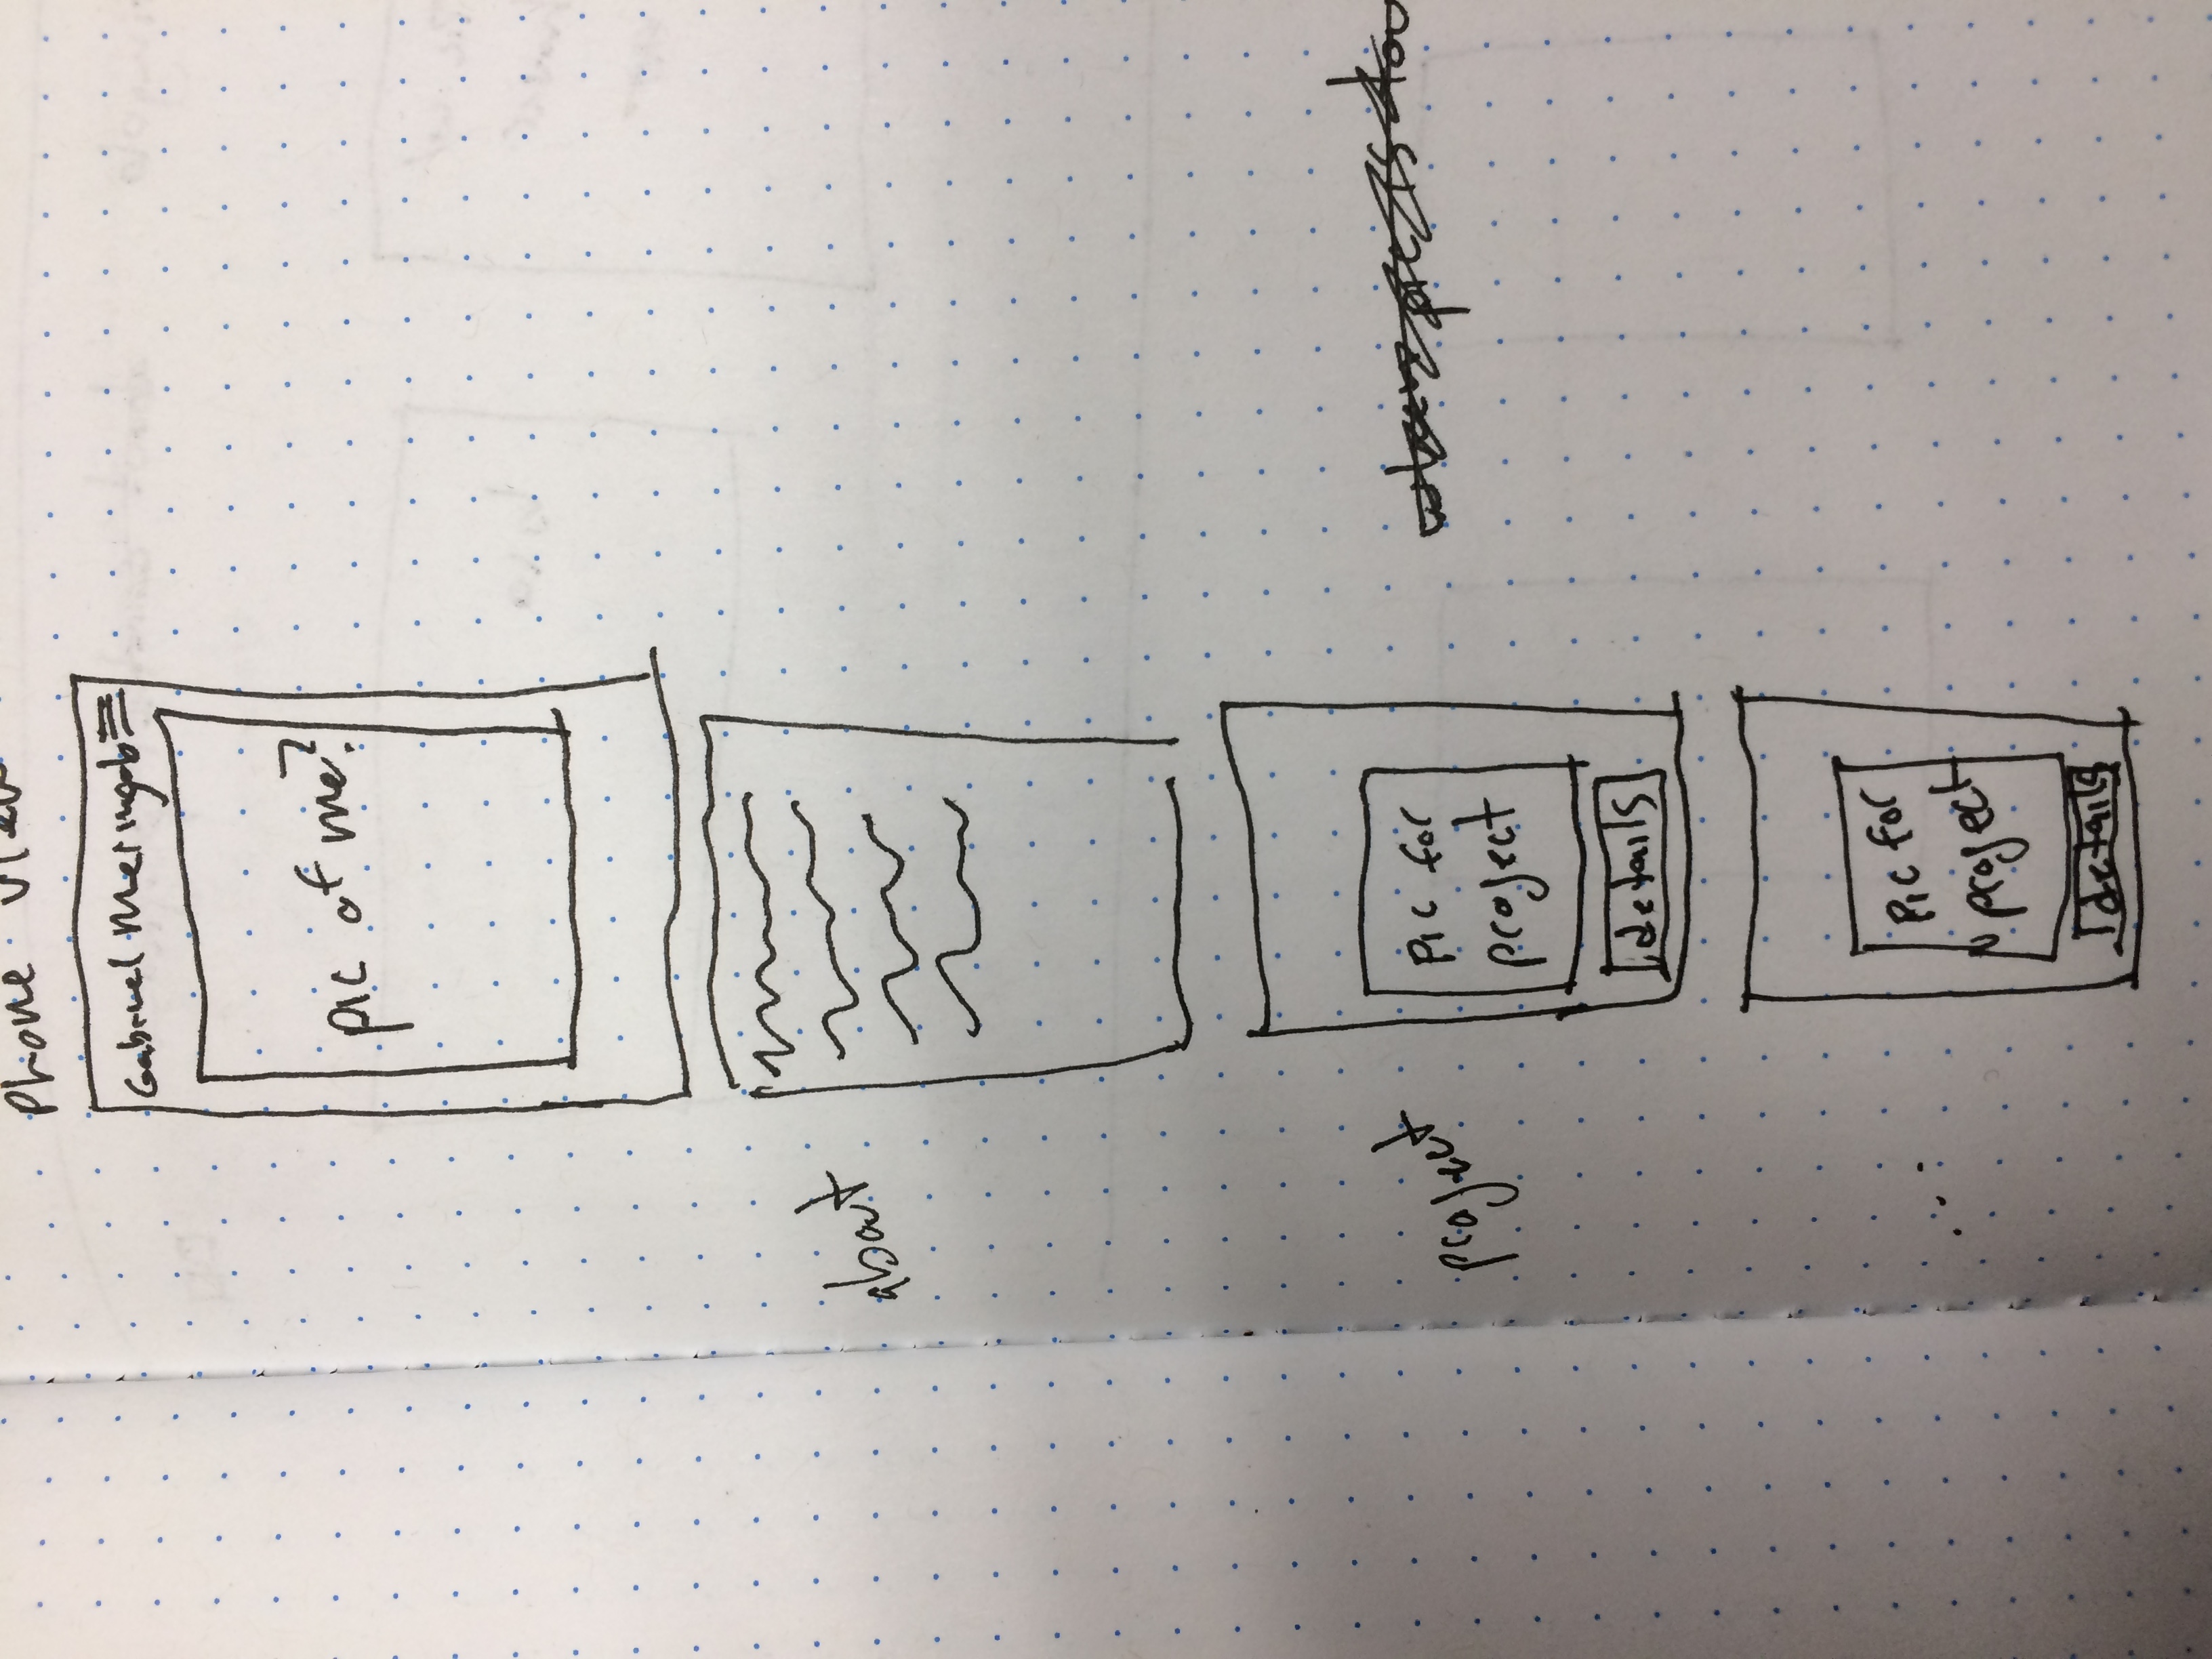 Phone view
Gabriel Meringolo
pic of me?
about
project
Pic for
project
details
Pic for
project
details